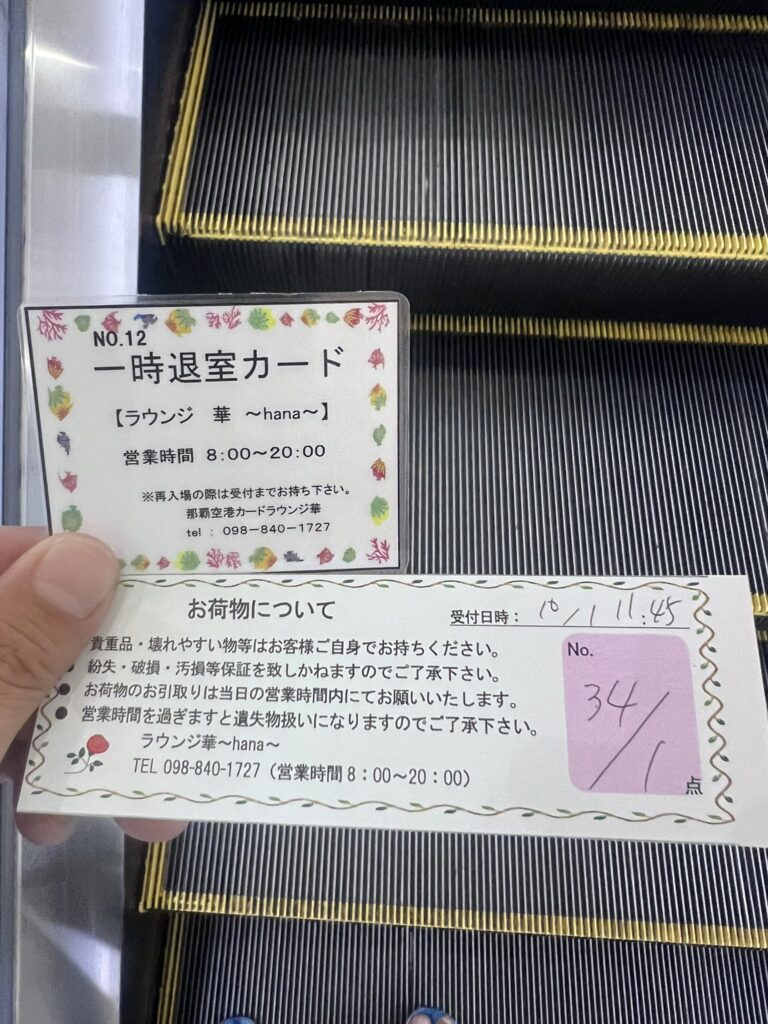 NO.12
一時退室カード
【ラウンジ 華 ～hana～】
営業時間 8:00～20:00
※再入場の際は受付までお持ち下さい。
那覇空港カードラウンジ華
tel : 098-840-1727
お荷物について
受付日時： 10/1 11:45
貴重品・壊れやすい物等はお客様ご自身でお持ちください。
紛失・破損・汚損等保証を致しかねますのでご了承下さい。
● お荷物のお引取りは当日の営業時間内にてお願いいたします。
● 営業時間を過ぎますと遺失物扱いになりますのでご了承下さい。
ラウンジ華～hana～
TEL 098-840-1727（営業時間 8：00～20：00）
No.
34/1
点